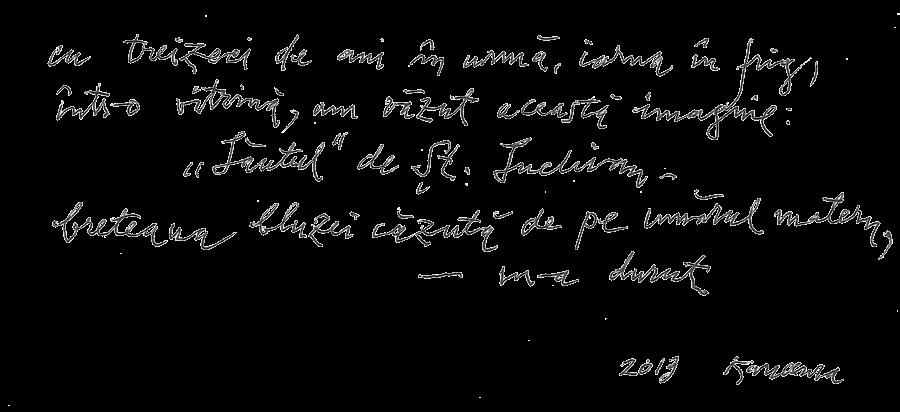 cu treizeci de ani în urmă, iarna în frig,
într-o vitrină, am văzut această imagine:
„Săutul" de Șt. Luchian -
breteaua bluzei căzută de pe umărul matern,
— m-a durut
2013